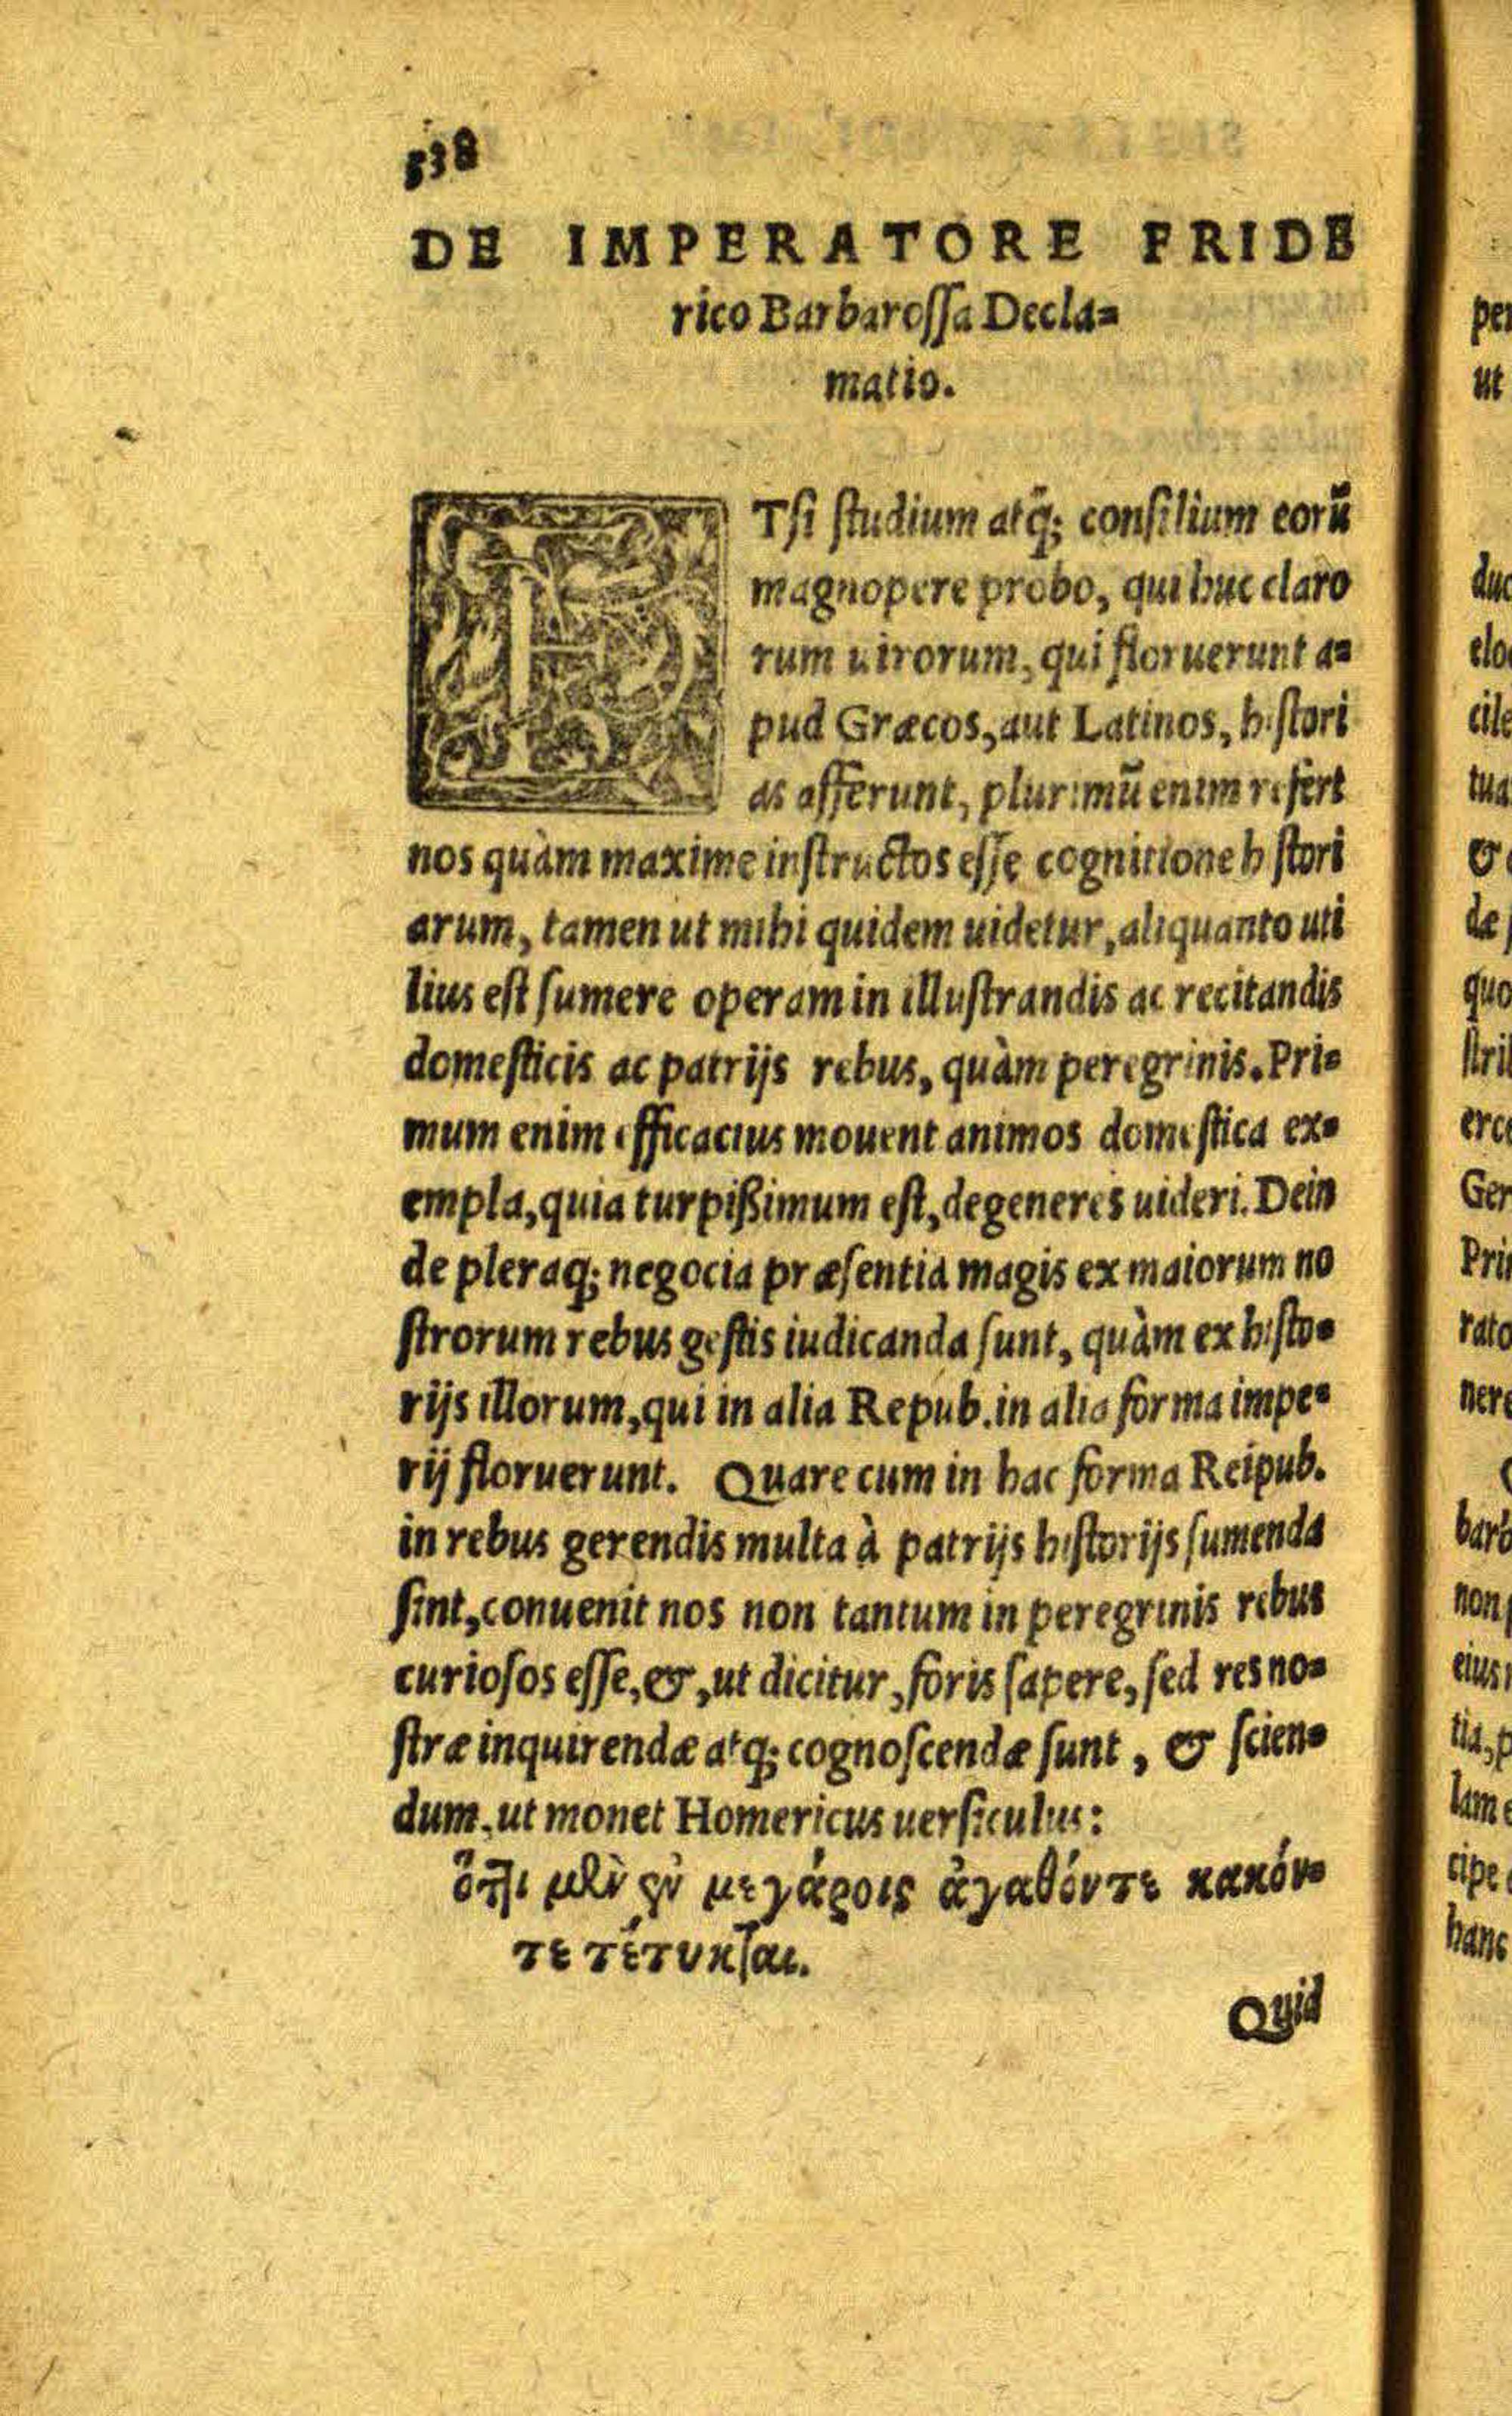 538
DE IMPERATORE FRIDE
rico Barbarossa Decla-
matio.
ETsi studium atq; consilium eorũ
magnopere probo, qui huc claro
rum uirorum, qui floruerunt a-
pud Græcos, aut Latinos, histori
as afferunt, plurimũ enim refert
nos quàm maxime instructos esse cognitione histori
arum, tamen ut mihi quidem uidetur, aliquanto uti
lius est sumere operam in illustrandis ac recitandis
domesticis ac patrijs rebus, quàm peregrinis. Pri-
mum enim efficacius mouent animos domestica ex-
empla, quia turpißimum est, degeneres uideri. Dein
de pleraq; negocia præsentia magis ex maiorum no
strorum rebus gestis iudicanda sunt, quàm ex histo-
rijs illorum, qui in alia Repub. in alia forma impe-
rij floruerunt. Quare cum in hac forma Reipub.
in rebus gerendis multa à patrijs historijs sumenda
sint, conuenit nos non tantum in peregrinis rebus
curiosos esse, &, ut dicitur, foris sapere, sed res no-
stræ inquirendæ atq; cognoscendæ sunt, & scien-
dum, ut monet Homericus uersiculus:
ὅττι μὲν ἐν μεγάροις ἀγαθόντε κακόν-
τε τέτυκται.
Quid
per
ut
duc
elo
cile
tua
&
de
quo
stri
erce
Ger
Pri
rato
nere
barb
non
eius
tia, p
lam
cipe
hanc